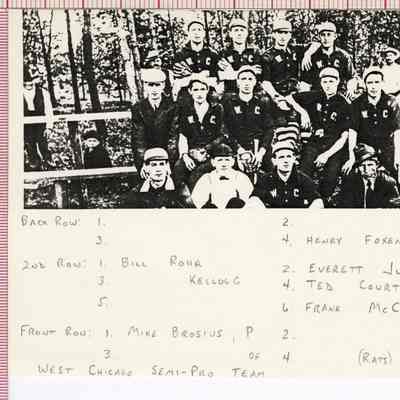 Back Row: 1. 2.
3. 4. Henry Foxen
2nd Row: 1. Bill Rohr 2. Everett Ju
3. Kellogg 4. Ted Court
5. 6 Frank McC
Front Row: 1. Mike Brosius, P 2.
3. of 4 (Rats)
West Chicago Semi-Pro Team